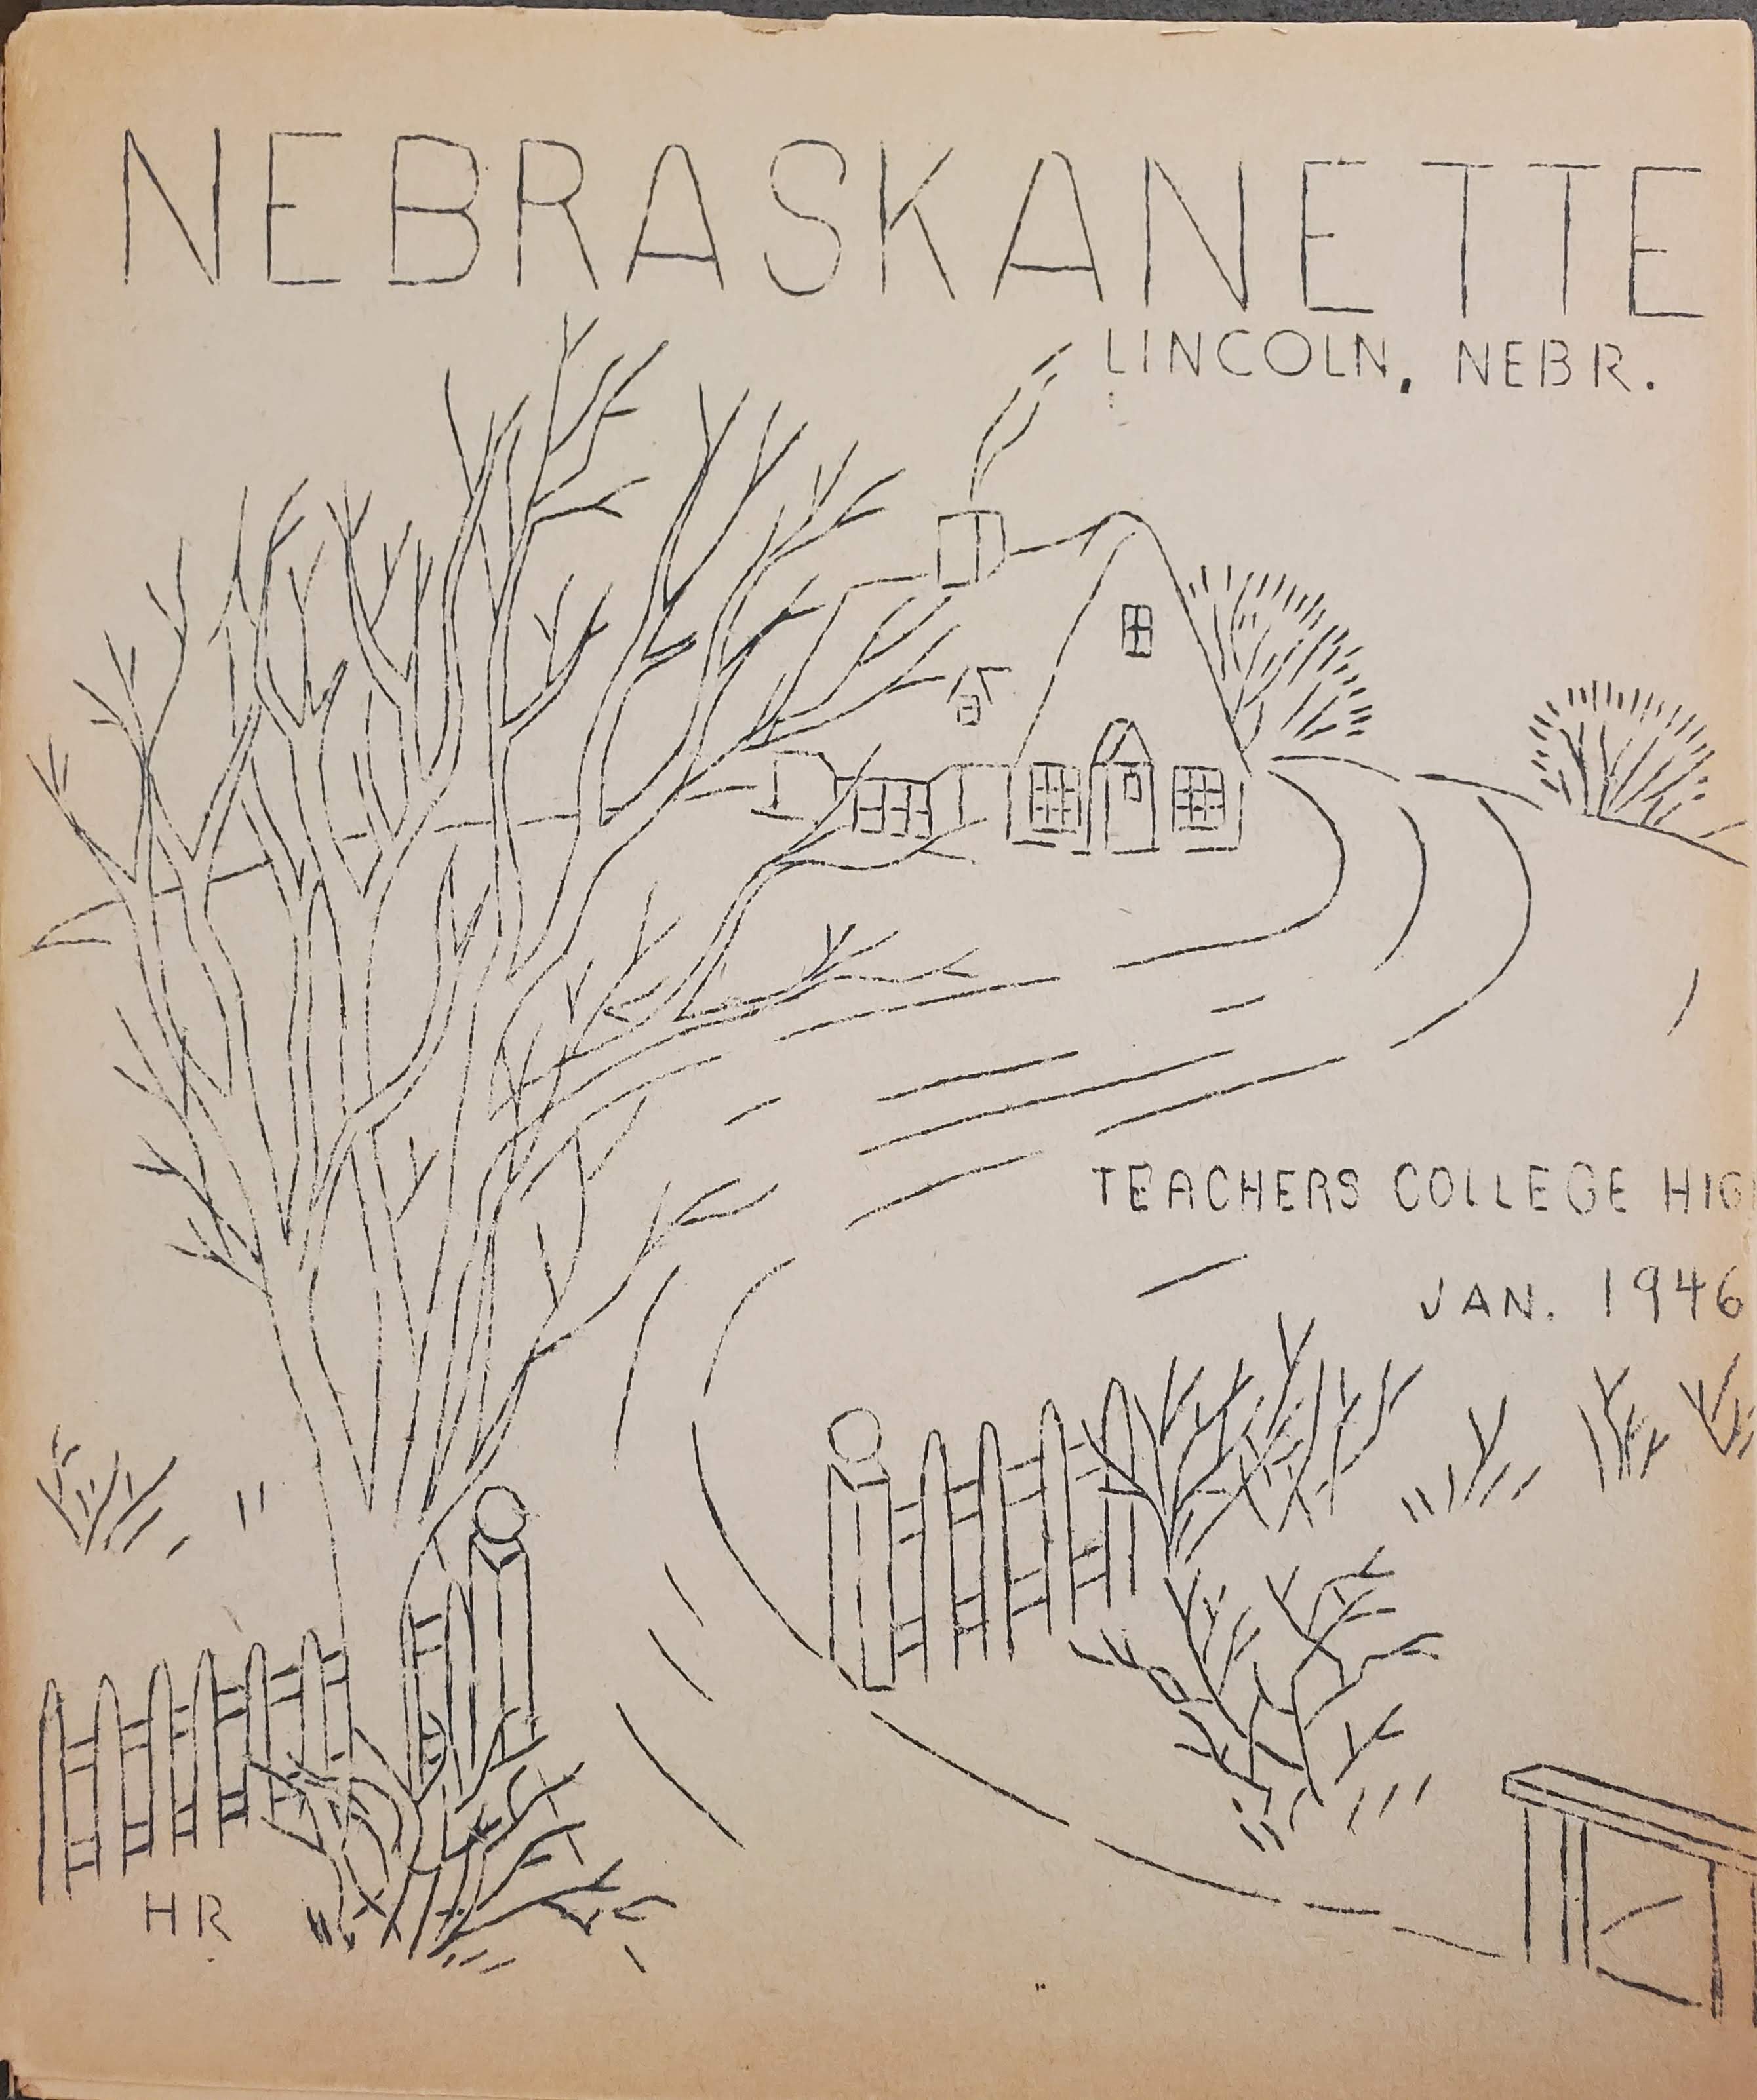 NEBRASKANETTE
LINCOLN, NEBR.
TEACHERS COLLEGE HIG
JAN. 1946
HR